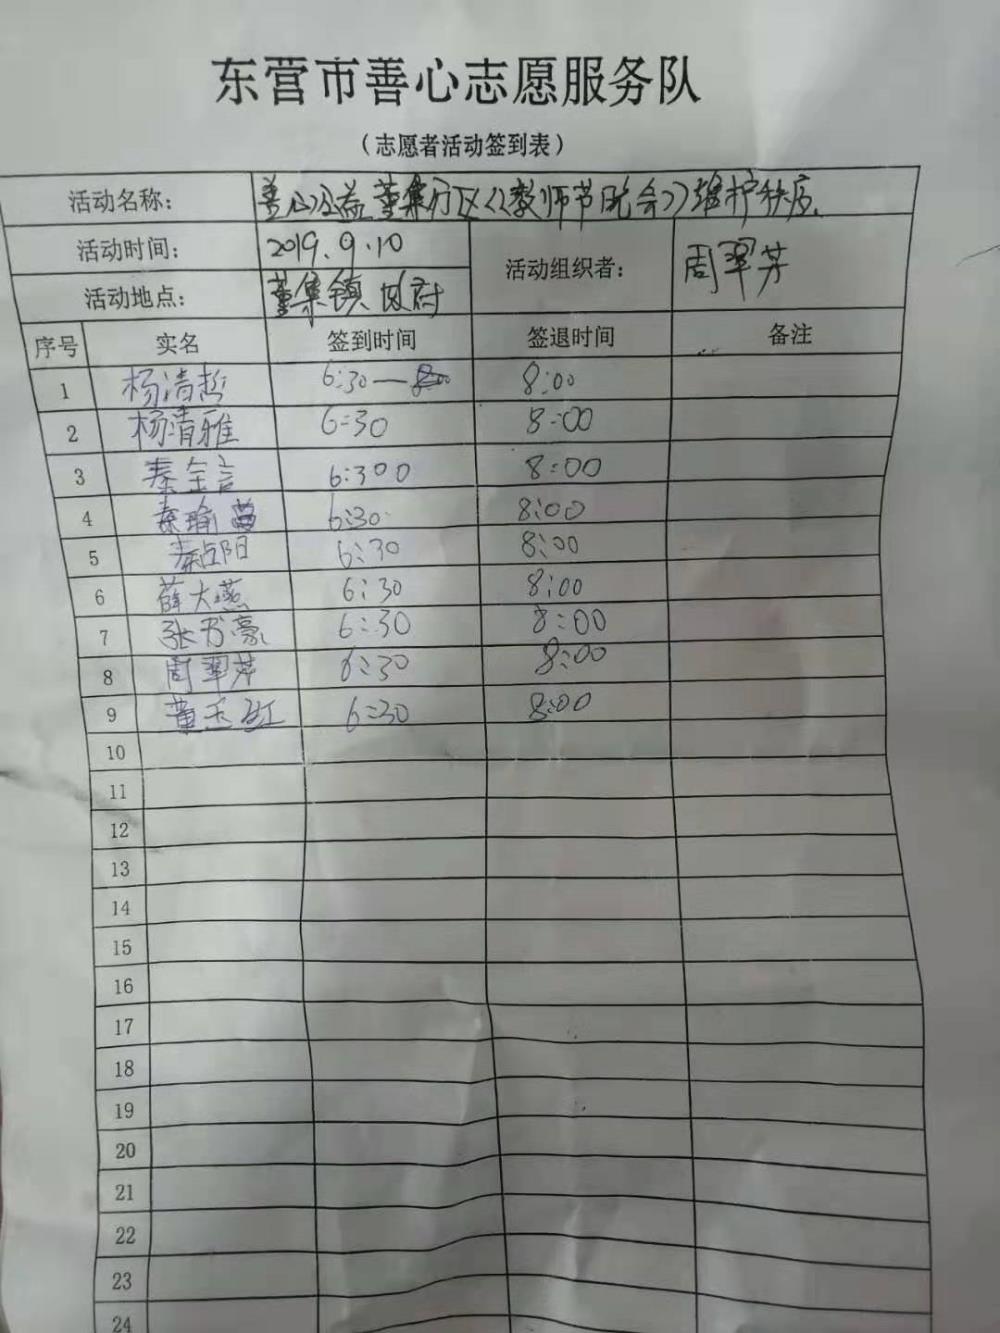 东营市善心志愿服务队
（志愿者活动签到表）
活动名称： 善心公益董集分区《教师节晚会》维护秩序.
活动时间： 2019.9.10 活动组织者： 周翠芳
活动地点： 董集镇政府
序号 实名 签到时间 签退时间 备注
1 杨清哲 6:30— 8:00
2 杨清雅 6:30 8:00
3 秦全言 6:300 8:00
4 秦瑜 6:30 8:00
5 秦 阳 6:30 8:00
6 薛大燕 6:30 8:00
7 张书豪 6:30 8:00
8 周翠芳 6:30 8:00
9 董玉红 6:30 8:00
10
11
12
13
14
15
16
17
18
19
20
21
22
23
24